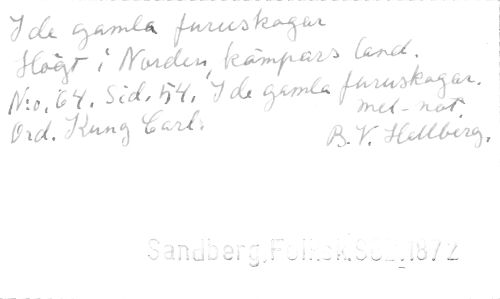 I de gamla furuskogar
Högt i Norden, kämpars land.
N:o. 64. Sid. 54. I de gamla furuskogar.
mel-not.
Ord. Kung Carl.
B.V. Hellberg.
Sandberg, 1872